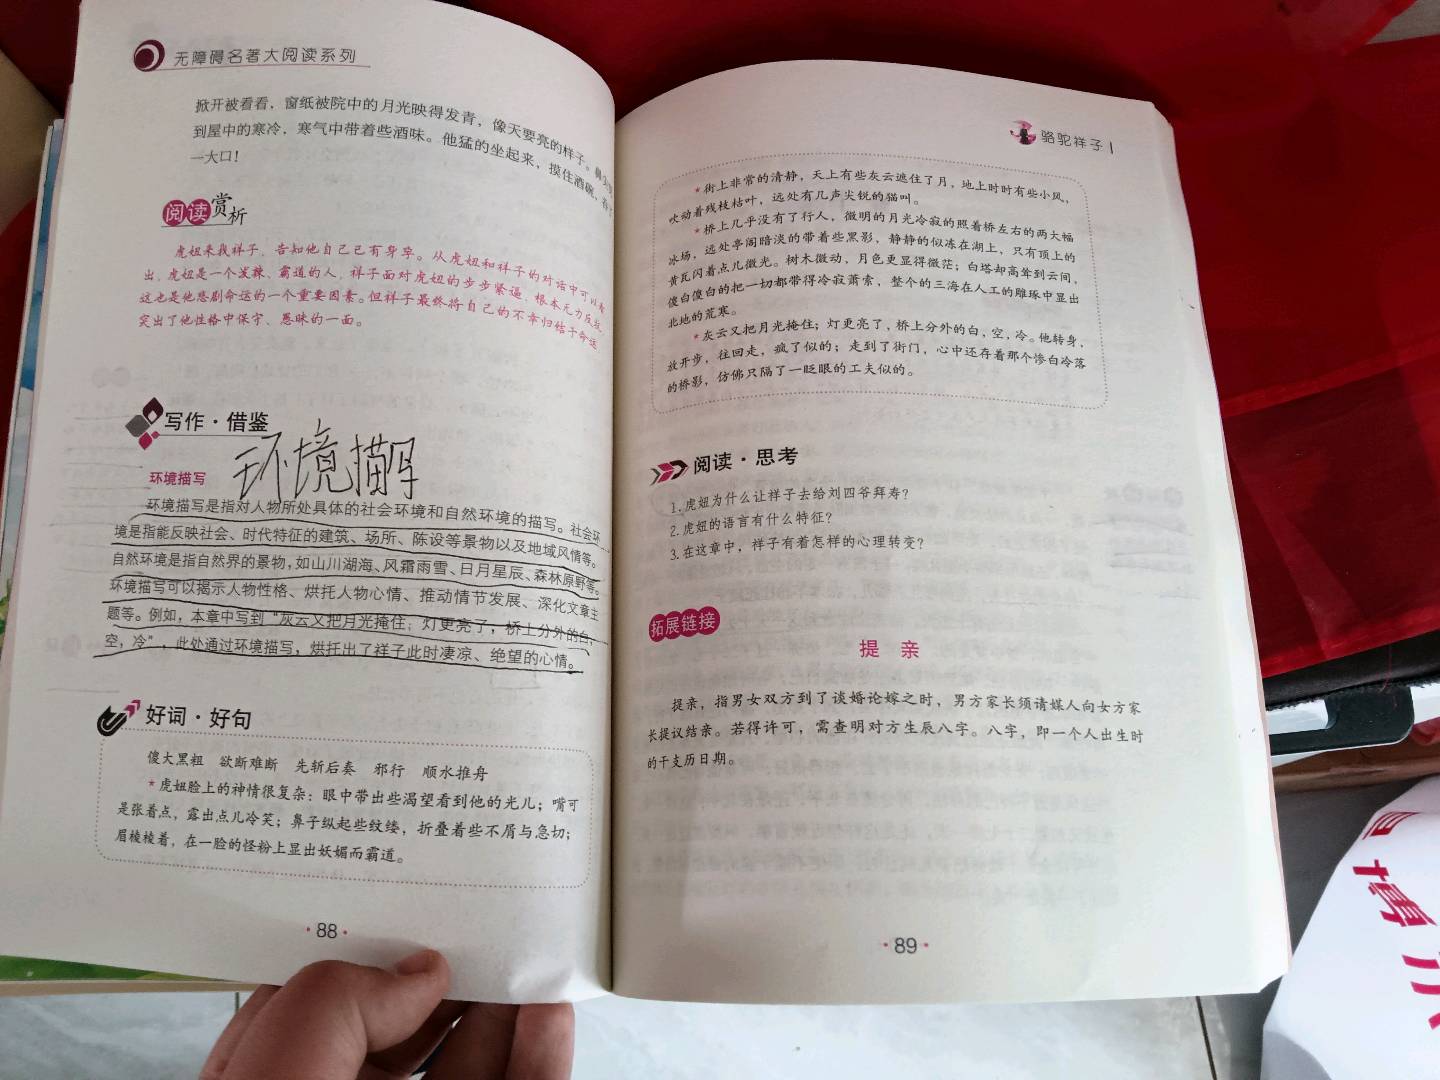 无障碍名著大阅读系列
掀开被看看，窗纸被院中的月光映得发青，像天要亮的样子。鼻尖
到屋中的寒冷，寒气中带着些酒味。他猛的坐起来，摸住酒碗，吞了
一大口！
阅读赏析
虎妞来找祥子，告知他自己已有身孕。从虎妞和祥子的对话中可以看
出，虎妞是一个泼辣、霸道的人，祥子面对虎妞的步步紧逼，根本无力反抗，
这也是他悲剧命运的一个重要因素。但祥子最终将自己的不幸归结于命运，
突出了他性格中保守、愚昧的一面。
写作·借鉴
环境描写
环境描写
环境描写是指对人物所处具体的社会环境和自然环境的描写。社会环
境是指能反映社会、时代特征的建筑、场所、陈设等景物以及地域风情等。
自然环境是指自然界的景物，如山川湖海、风霜雨雪、日月星辰、森林原野等。
环境描写可以揭示人物性格、烘托人物心情、推动情节发展、深化文章主
题等。例如，本章中写到“灰云又把月光掩住；灯更亮了，桥上分外的白，
空，冷”，此处通过环境描写，烘托出了祥子此时凄凉、绝望的心情。
好词·好句
傻大黑粗 欲断难断 先斩后奏 邪行 顺水推舟
*虎妞脸上的神情很复杂：眼中带出些渴望看到他的光儿；嘴可
是张着点，露出点儿冷笑；鼻子纵起些纹缕，折叠着些不屑与急切；
眉棱棱着，在一脸的怪粉上显出妖媚而霸道。
·88·
骆驼祥子
*街上非常的清静，天上有些灰云遮住了月，地上时时有些小风，
吹动着残枝枯叶，远处有几声尖锐的猫叫。
*桥上几乎没有了行人，微明的月光冷寂的照着桥左右的两大幅
冰场，远处亭阁暗淡的带着些黑影，静静的似冻在湖上，只有顶上的
黄瓦闪着点儿微光。树木微动，月色更显得微茫；白塔却高耸到云间，
傻白傻白的把一切都带得冷寂萧索，整个的三海在人工的雕琢中显出
北地的荒寒。
*灰云又把月光掩住；灯更亮了，桥上分外的白，空，冷。他转身，
放开步，往回走，疯了似的；走到了街门，心中还存着那个惨白冷落
的桥影，仿佛只隔了一眨眼的工夫似的。
阅读·思考
1.虎妞为什么让祥子去给刘四爷拜寿？
2.虎妞的语言有什么特征？
3.在这章中，祥子有着怎样的心理转变？
拓展链接
提亲
提亲，指男女双方到了谈婚论嫁之时，男方家长须请媒人向女方家
长提议结亲。若得许可，需查明对方生辰八字。八字，即一个人出生时
的干支历日期。
·89·
博